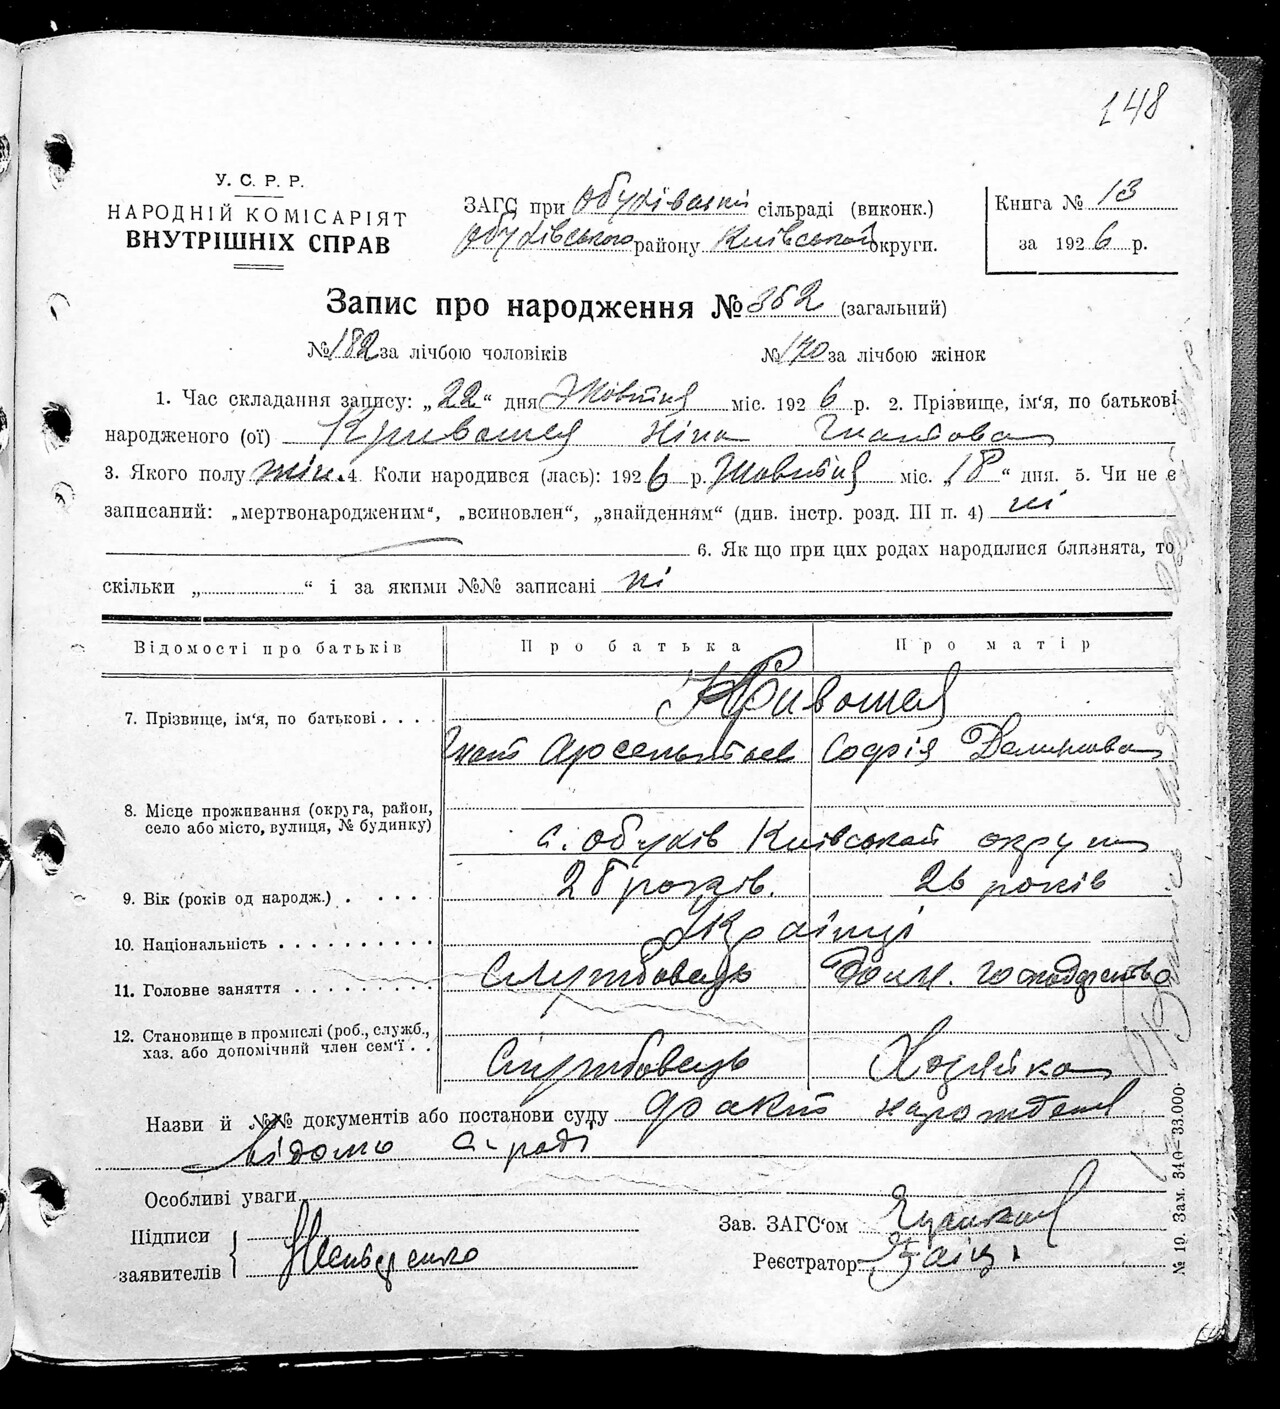 148
У. С. Р. Р.
НАРОДНІЙ КОМІСАРІЯТ
ВНУТРІШНІХ СПРАВ
ЗАГС при Обухівській сільраді (виконк.)
Обухівського району Київської округи.
Книга № 13
за 1926 р.
Запис про народження № 352 (загальний)
№ 182 за лічбою чоловіків № 170 за лічбою жінок
1. Час складання запису: „22“ дня Жовтня міс. 1926 р. 2. Прізвище, ім'я, по батькові
народженого (ої) Кривошея Ніна Гнатова
3. Якого полу жін. 4. Коли народився (лась): 1926 р. Жовтня міс. „18“ дня. 5. Чи не є
записаний: „мертвонародженим“, „всиновлен“, „знайденням“ (див. інстр. розд. III п. 4) ні
6. Як що при цих родах народилися близнята, то
скільки „ “ і за якими №№ записані ні
Відомості про батьків Про батька Про матір
7. Прізвище, ім'я, по батькові . . . . Кривошея
Гнат Арсентьєв Софія
8. Місце проживання (округа, район,
село або місто, вулиця, № будинку)
с. Обухів Київської округи
9. Вік (років од народж.) . . . . . 28 років. 26 років
10. Національність . . . . . . . . . . Українці
11. Головне заняття . . . . . . . . . Службовець Дом. господарство
12. Становище в промислі (роб., службо.,
хаз. або допомічний член сем'ї . .
Службовець Хозяйка
Назви й №№ документів або постанови суду факт народження
відомо с-раді
Особливі уваги
Підписи
заявителів
Зав. ЗАГС'ом
Реєстратор Заіць
№ 19. Зам. 340—33.000.